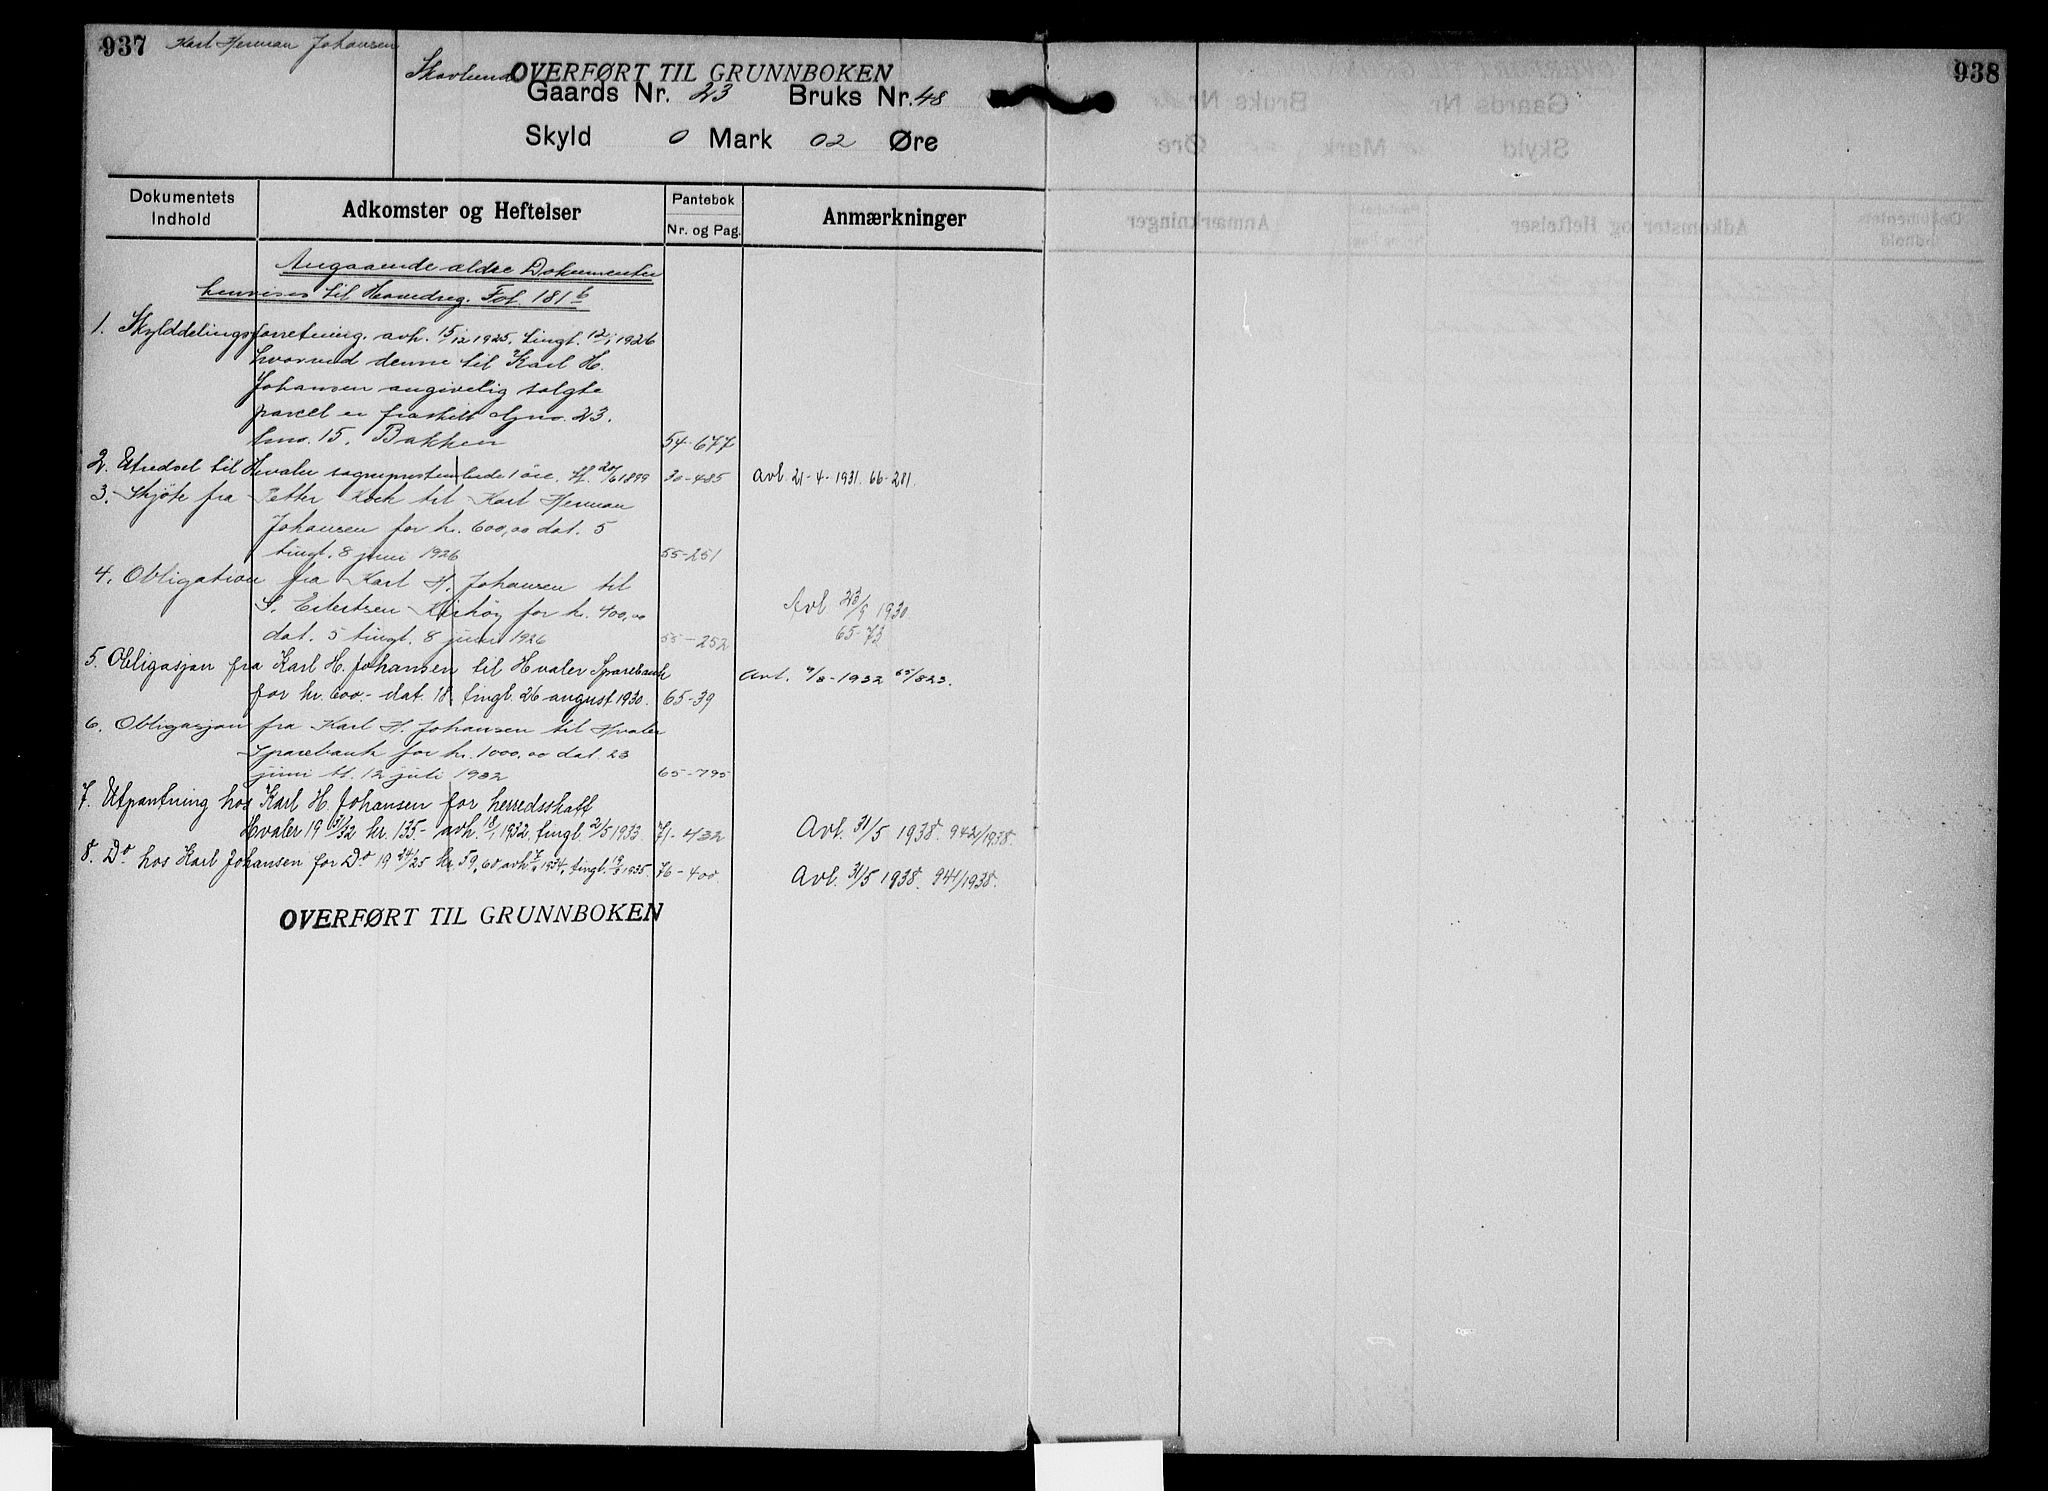 937 Karl Herman Johansen
938
Skovlund OVERFØRT TIL GRUNNBOKEN
Gaards Nr. 23 Bruks Nr. 48
Skyld 0 Mark 02 Øre
Dokumentets Indhold
Adkomster og Heftelser
Pantebok
Nr. og Pag.
Anmærkninger
Angaaende ældre Dokumenter
henvises til Hovedreg. Fol. 181 b
1. Skylddelingsforretning. avh. 15/12 1925. tingl. 12/1 1926
hvorved denne til Karl H.
Johansen angivelig solgte
parcel er fraskilt Gno. 23.
bno. 15. Bakken 54-677
2. Utredsel til Hvaler 1 öre. tl. 20/6 1899 30-485 Avl. 21-4-1931. 66-281.
3. Skjöte fra Petter Kock til Karl Herman
Johansen for kr. 600,00 dat. 5
tingl. 8 juni 1926 55-251
4. Obligation fra Karl H. Johansen til
S. Eilertsen Kirköy for kr. 400,00 Avl 23/9 1930
dat. 5 tingl. 8 juni 1926 55-252 65-73
5. Obligasjon fra Karl H. Johansen til Hvaler Sparebank
for kr. 600.- dat. 18 tingl. 26 august 1930. 65-39 Avl. 9/8-1932 65/823.
6. Obligasjon fra Karl H. Johansen til Hvaler
Sparebank for kr. 1000,00 dat. 23
juni tl. 12 juli 1932 65-795
7. Utpantning hos Karl H. Johansen for herredsskatt
Hvaler 19 31/32 kr. 135.- avh. 18/1 1932, tingl. 2/5 1933. 71-432 Avl. 31/5 1938. 942/1938.
8. Do hos Karl Johansen for Do 19 24/25 kr. 59,60 avh. 1934, tingl. 1935. 76-400. Avl. 31/5 1938. 941/1938.
OVERFØRT TIL GRUNNBOKEN